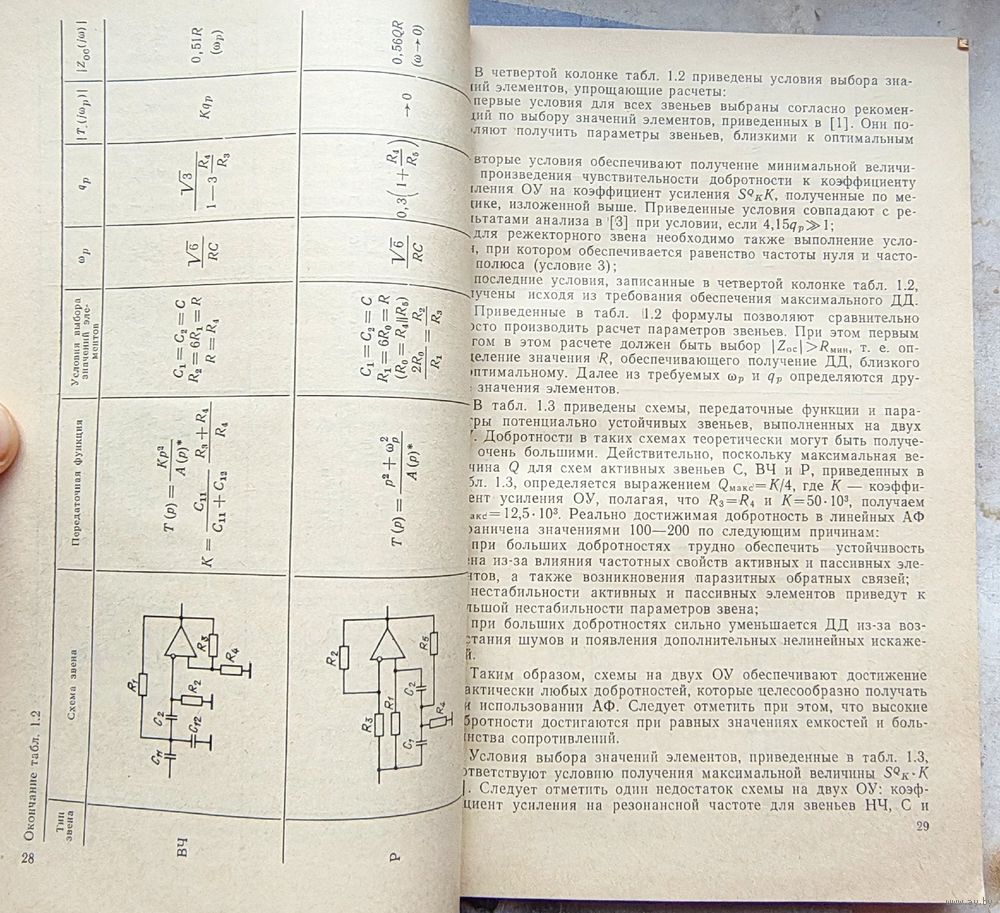 28 Окончание табл. 1.2
Тип звена
Схема звена
Передаточная функция
Условия выбора значений элементов
ωp
qp
|T(jωp)|
|Zос(jω)|
ВЧ
R1
C11
C2
C12
R2
R3
R4
T (p) = Kp² / A (p)*
K = C11 / (C11 + C12) · (R3 + R4) / R4
C1 = C2 = C
R2 = 6R1 = R
2 R = R4
√6 / RC
√3 / (1 — 3 R4/R3)
Kqp
0,51R
(ωp)
Р
R2
R3
R1
C1
C2
R4
R5
T (p) = (p² + ω²p) / A (p)*
C1 = C2 = C
R1 = 6R0 = R
(R0 = R4‖R5)
2R0 / R1 = R2 / R3
√6 / RC
0,3(1 + R4/R5)
→0
0,56QR
(ω→0)
В четвертой колонке табл. 1.2 приведены условия выбора зна-
ий элементов, упрощающие расчеты:
первые условия для всех звеньев выбраны согласно рекомен-
ций по выбору значений элементов, приведенных в [1]. Они по-
ляют получить параметры звеньев, близкими к оптимальным
вторые условия обеспечивают получение минимальной величи-
произведения чувствительности добротности к коэффициенту
иления ОУ на коэффициент усиления SQKK, полученные по ме-
дике, изложенной выше. Приведенные условия совпадают с ре-
льтатами анализа в [3] при условии, если 4,15qp≫1;
для режекторного звена необходимо также выполнение усло-
, при котором обеспечивается равенство частоты нуля и часто-
полюса (условие 3);
последние условия, записанные в четвертой колонке табл. 1.2,
лучены исходя из требования обеспечения максимального ДД.
Приведенные в табл. 1.2 формулы позволяют сравнительно
осто производить расчет параметров звеньев. При этом первым
гом в этом расчете должен быть выбор |Zос|>Rмин, т. е. оп-
деление значения R, обеспечивающего получение ДД, близкого
оптимальному. Далее из требуемых ωp и qp определяются дру-
значения элементов.
В табл. 1.3 приведены схемы, передаточные функции и пара-
тры потенциально устойчивых звеньев, выполненных на двух
. Добротности в таких схемах теоретически могут быть получе-
очень большими. Действительно, поскольку максимальная ве-
чина Q для схем активных звеньев С, ВЧ и Р, приведенных в
бл. 1.3, определяется выражением Qмакс=K/4, где K — коэффи-
ент усиления ОУ, полагая, что R3=R4 и K=50·10³, получаем
акс=12,5·10³. Реально достижимая добротность в линейных АФ
раничена значениями 100—200 по следующим причинам:
при больших добротностях трудно обеспечить устойчивость
на из-за влияния частотных свойств активных и пассивных эле-
нтов, а также возникновения паразитных обратных связей;
нестабильности активных и пассивных элементов приведут к
льшой нестабильности параметров звена;
при больших добротностях сильно уменьшается ДД из-за воз-
стания шумов и появления дополнительных нелинейных искаже-
й.
Таким образом, схемы на двух ОУ обеспечивают достижение
актически любых добротностей, которые целесообразно получать
и использовании АФ. Следует отметить при этом, что высокие
бротности достигаются при равных значениях емкостей и боль-
инства сопротивлений.
Условия выбора значений элементов, приведенные в табл. 1.3,
ответствуют условию получения максимальной величины SQK·K
]. Следует отметить один недостаток схемы на двух ОУ: коэф-
циент усиления на резонансной частоте для звеньев НЧ, С и
29
www.ay.by